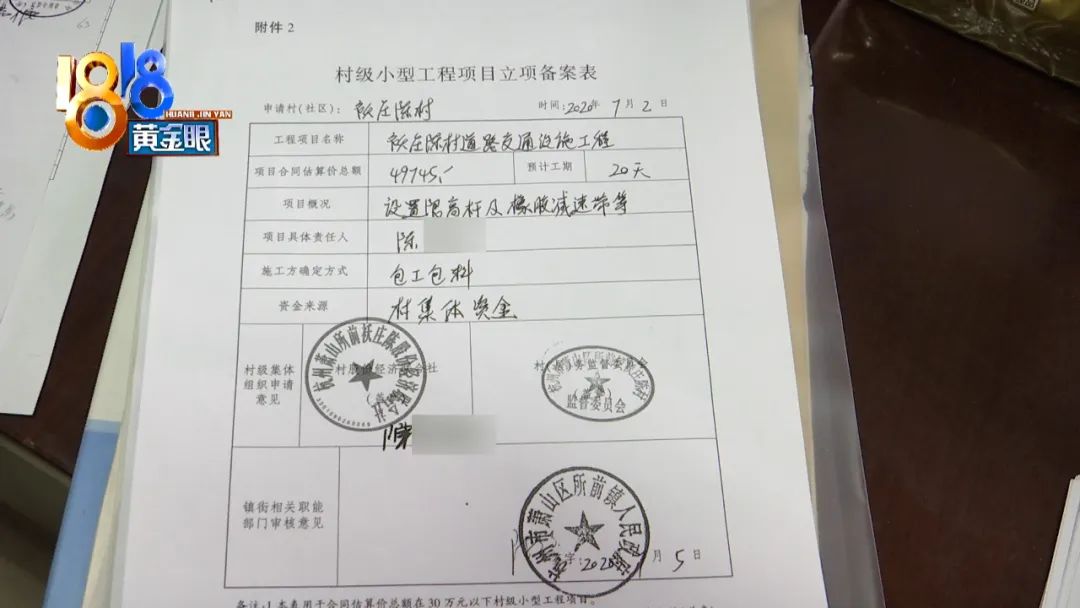 附件2
1818
HUANG JIN YAN
黄金眼
村级小型工程项目立项备案表
申请村(社区): 欤庄陈村 时间: 2020年 7月 2日
工程项目名称 道路交通设施工程
项目合同估算价总额 49745.- 预计工期 20天
项目概况 设置限高杆及橡胶减速带等
项目具体责任人 陈
施工方确定方式 包工包料
资金来源 村集体资金
村级集体
组织申请
意见
杭州萧山所前
监督委员会
陈
镇街相关职能
部门审核意见
杭州市萧山区所前镇人民政府
字: 2020 月 5 日
备注:1.本表用于合同估算价总额在30万元以下村级小型工程项目。